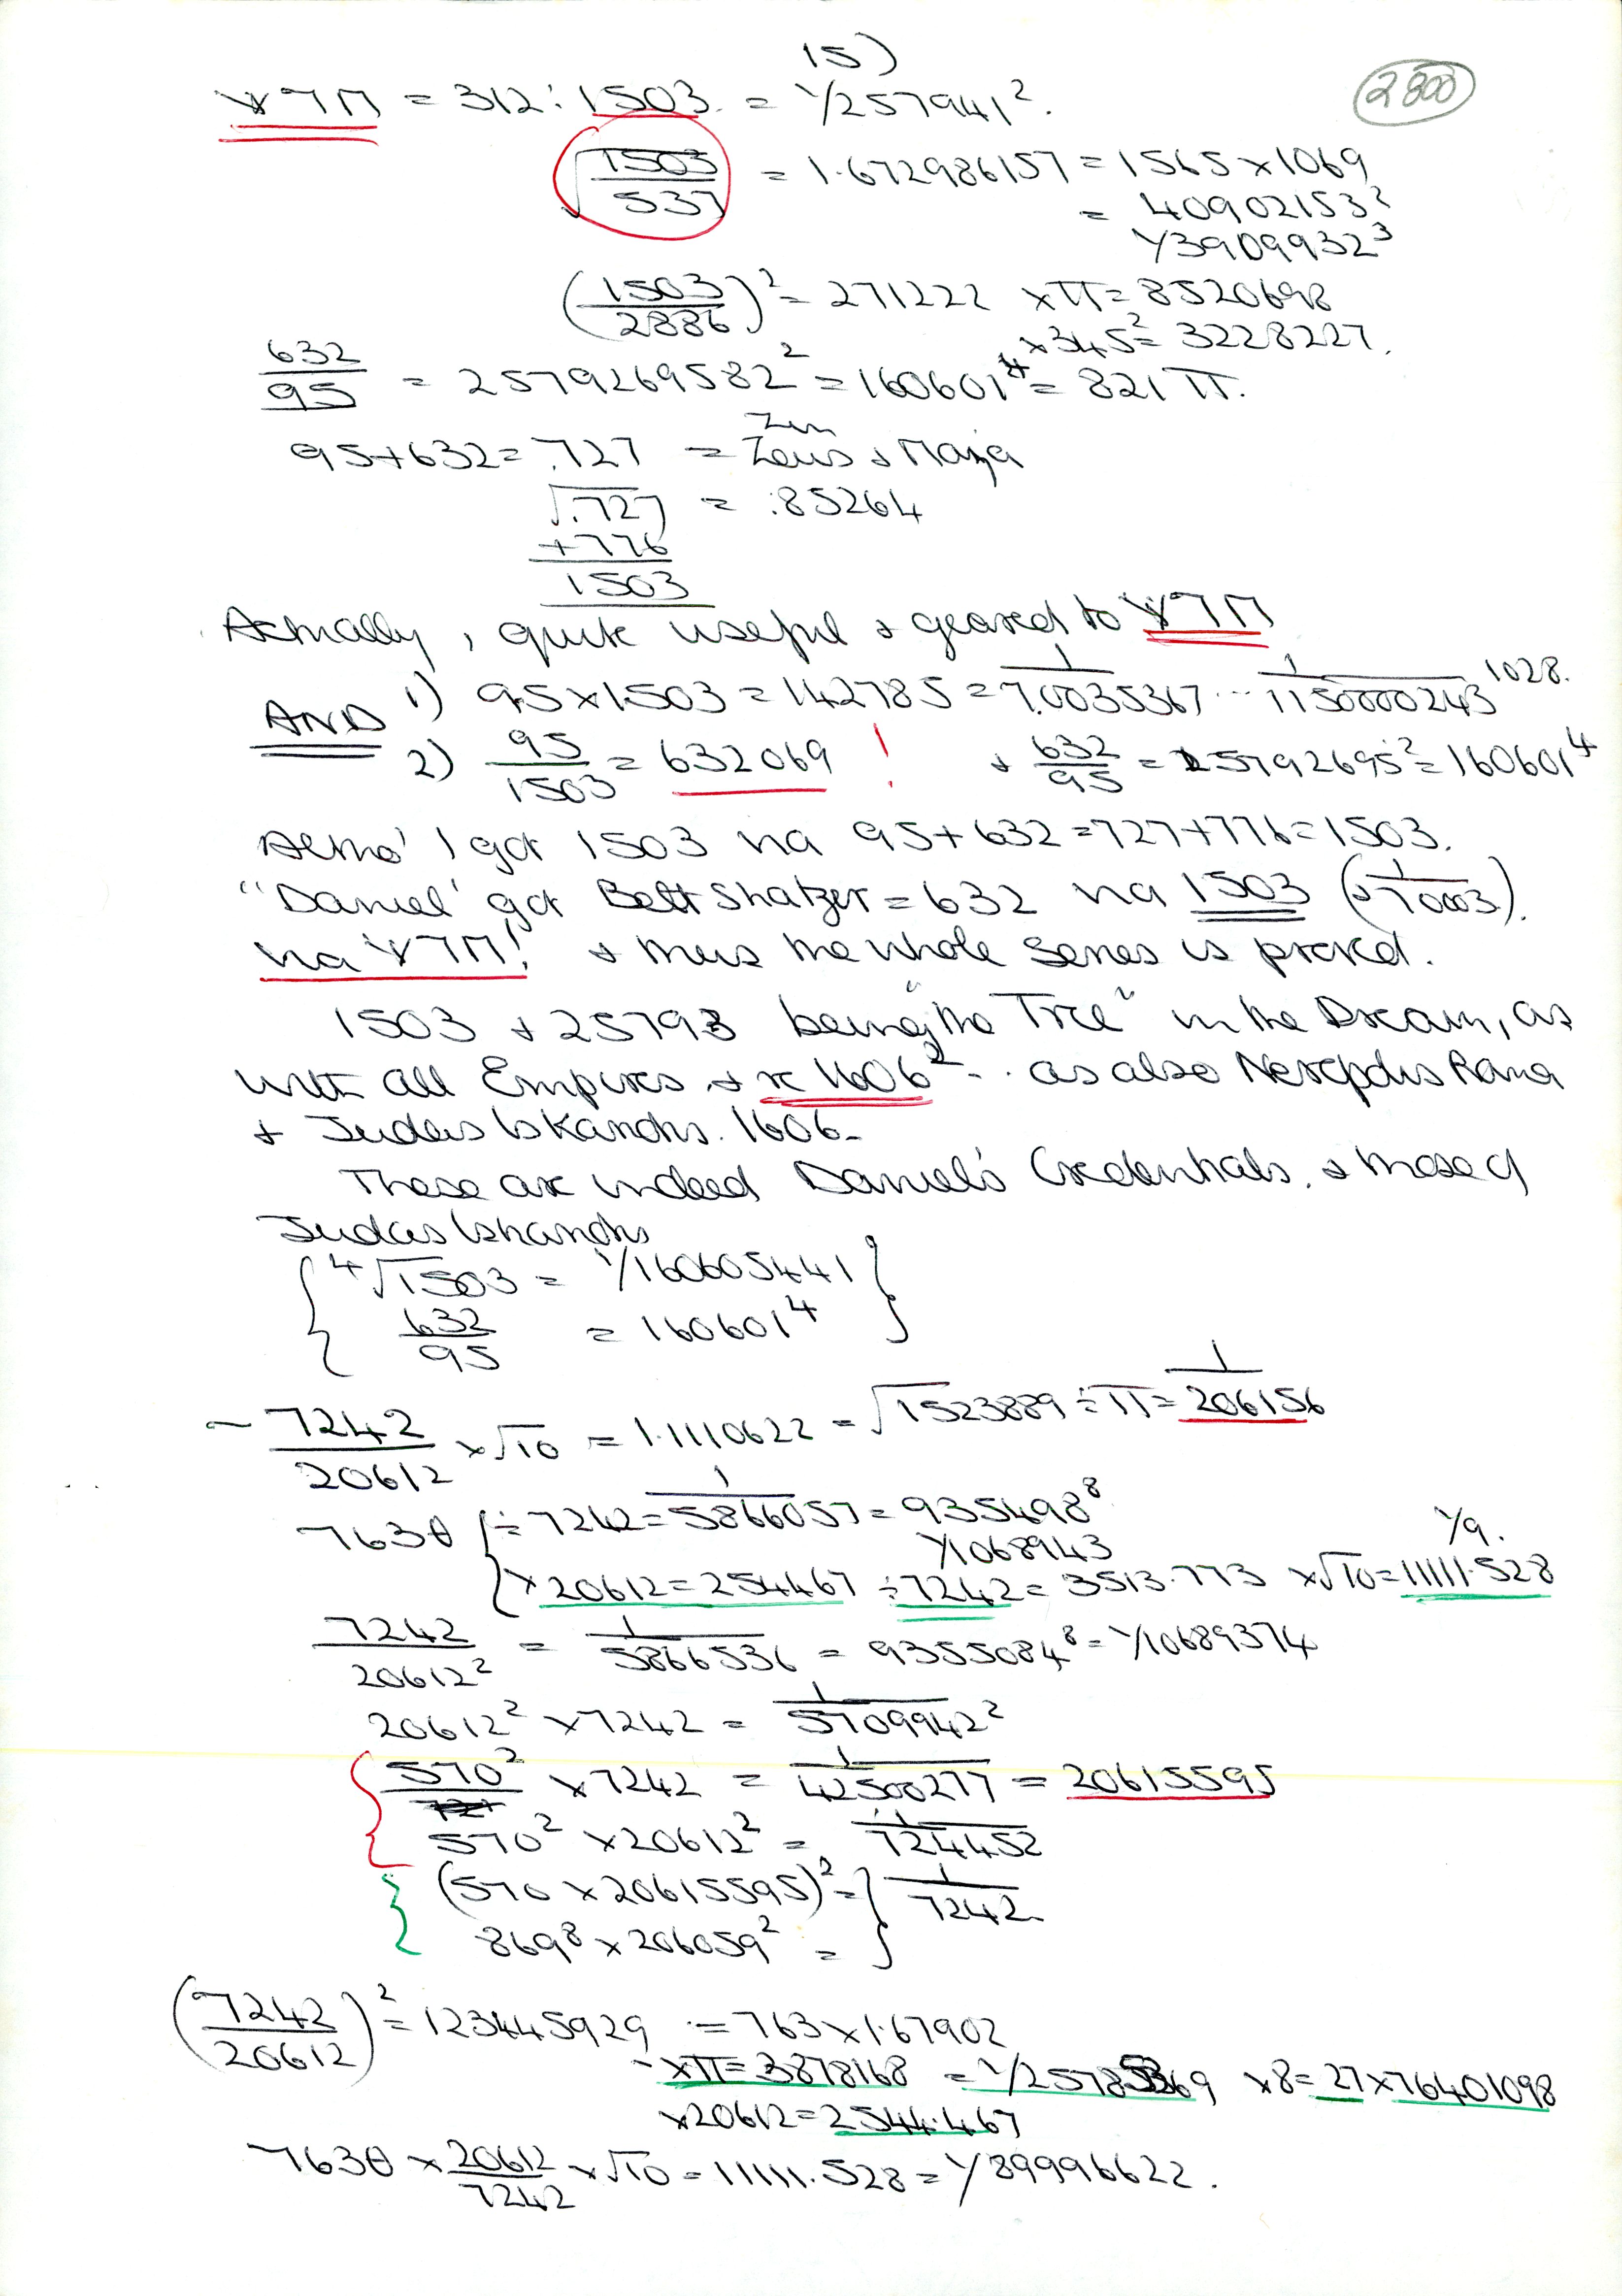 15)
2800
= 312 : 1503. = 1/257941².
√1503/537 = 1.672986157 = 1565 x 1069
= 40902153²
1/3909932³
(1503/2886)² = 271222 x π = 8520698
x 345² = 3228227.
632/95 = 2579269582² = 160601⁴ = 821 π.
Zen
95+632 = .727 = Zeus & Maja
√.727 = .85264
+776
1503
Actually, quite useful & geared to
AND 1) 95 x 1503 = 142785 = 1/7.0035367 -- 1/1150000243 1028.
2) 95/1503 = 632069 ! & 632/95 = 25792695² = 160601⁴
I got 1503 na 95 + 632 = 727 + 776 = 1503.
"Daniel" got = 632 na 1503
na ! & thus the whole series is proved.
1503 & 25793 being "the Tree" in the Dream, as
with all Empires & x 1606² -- as also Rana
& Judas Iskariots. 1606 -
These are indeed Daniel's Credentials, & those of
Judas Iskariots
{ ⁴√1503 = 1/160605441 }
632/95 = 160601⁴
~ 7242/20612 x √10 = 1.1110622 = √1523889 ÷ π = 1/206156
763θ { ÷ 7242 = 1/5866057 = 935498⁸
1/1068943
1/9.
x 20612 = 254467 ÷ 7242 = 3513.773 x √10 = 11111.528
7242/20612² = 1/5866536 = 9355084⁸ = 1/10689374
20612² x 7242 = 1/5709942²
{ 570² x 7242 = 1/42500277 = 20615595
570² x 20612² = 1/724452
{ (570 x 20615595)² = } 1/7242
869⁸ x 206059² =
(7242/20612)² = 123445929 = 763 x 1.67902
- x π = 3878168 = x 8 = 27 x 76401098
x 20612 = 2544.467
763θ x 20612/7242 x √10 = 11111.528 = 1/89996622.